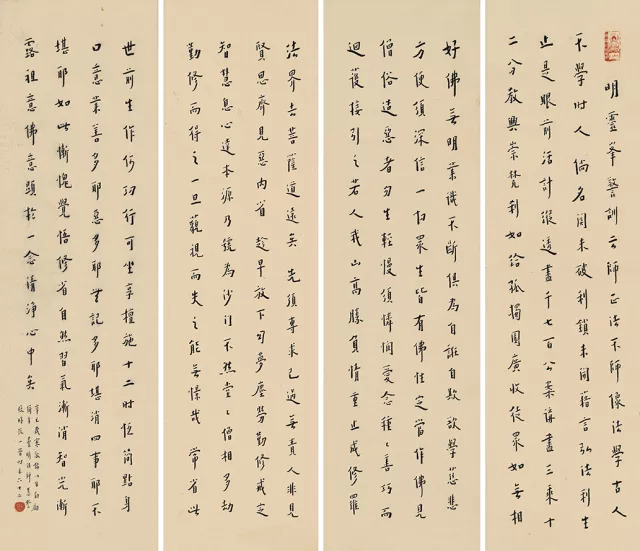 明靈峯警訓云師正法不師像法學古人
不學時人倘名關未破利鎖未開藉言弘法利生
止是眼前活計縱透盡千七百公案講盡三乘十
二分教興崇梵刹如給孤獨園廣收徒眾如無相
好佛無明業識不斷俱為自誑自欺故學慈悲
方便須深信一切眾生皆有佛性定當作佛見
僧俗造惡者勿生輕慢須憐憫愛念種種善巧而
迴護接引之若人我山高勝負情重止成修羅
法界去菩薩道遠矣先須專求己過毋責人非見
賢思齊見惡內省趁早放下夢塵勞勤修戒定
智慧息心達本源乃號為沙門不然堂堂僧相多劫
勤修而得之一旦藐視而失之能無哉常省此
世前生作何功行可坐享檀施十二時恆簡點身
口意業善多耶惡多耶無記多耶堪消四事耶不
堪耶如此慚愧覺悟修省自然習氣漸消智光漸
露祖意佛意顯於一念清淨心中矣